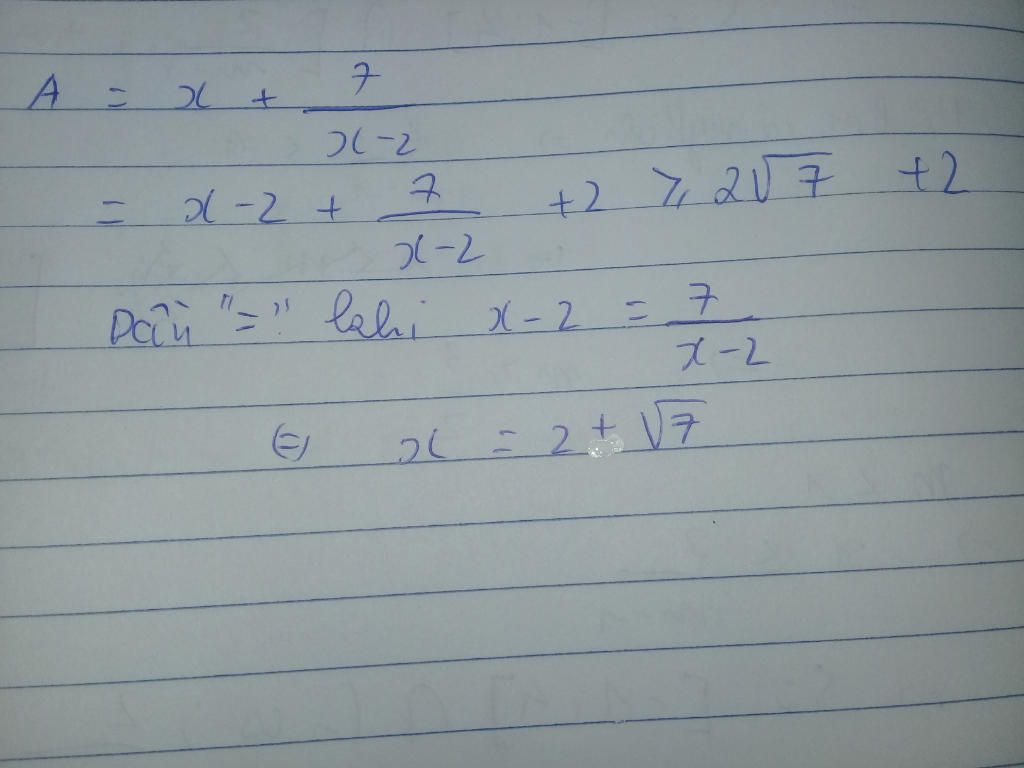 A = x + 7/(x-2)
= x-2 + 7/(x-2) +2 ≥ 2√7 +2
Dấu "=" khi x-2 = 7/(x-2)
⇔ x = 2 + √7